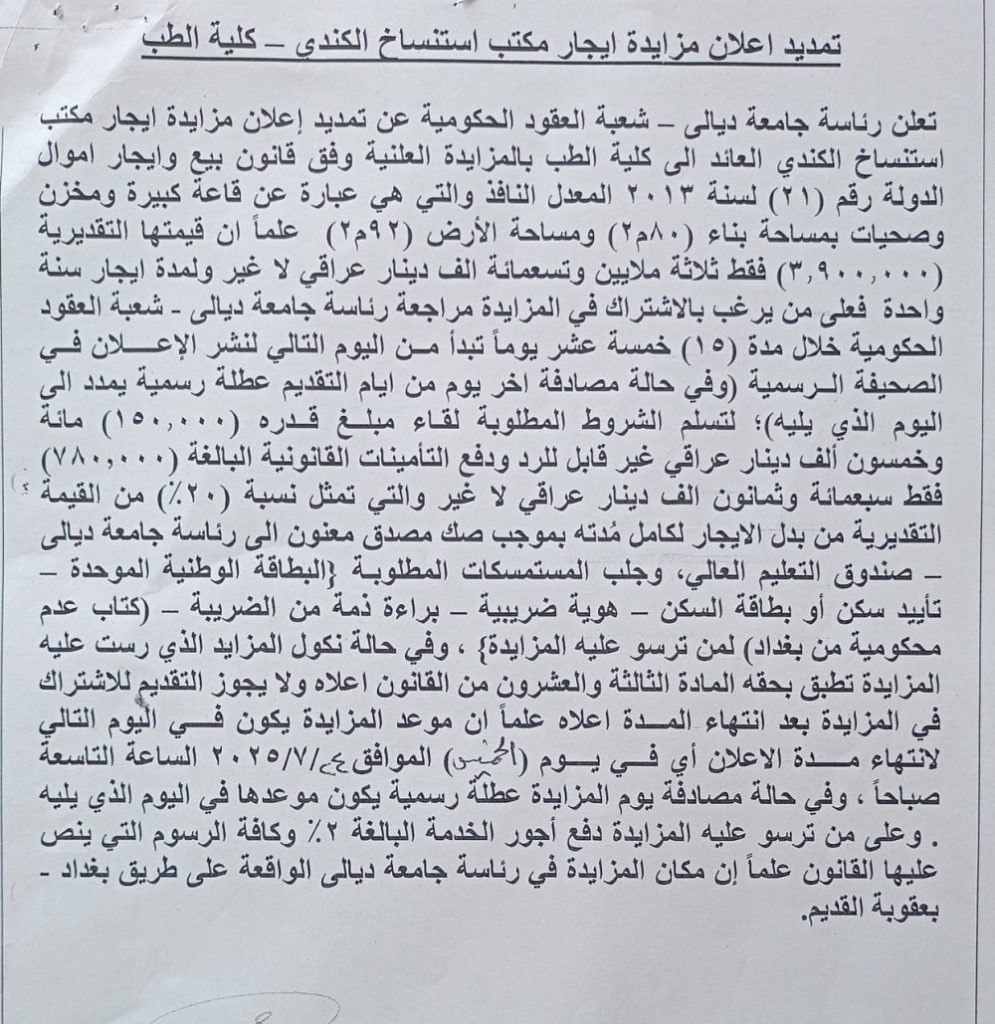 تمديد اعلان مزايدة ايجار مكتب استنساخ الكندي – كلية الطب
تعلن رئاسة جامعة ديالى – شعبة العقود الحكومية عن تمديد إعلان مزايدة ايجار مكتب
استنساخ الكندي العائد الى كلية الطب بالمزايدة العلنية وفق قانون بيع وايجار اموال
الدولة رقم (٢١) لسنة ٢٠١٣ المعدل النافذ والتي هي عبارة عن قاعة كبيرة ومخزن
وصحيات بمساحة بناء (٨٠م٢) ومساحة الأرض (٩٢م٢) علماً ان قيمتها التقديرية
(٣,٩٠٠,٠٠٠) فقط ثلاثة ملايين وتسعمائة الف دينار عراقي لا غير ولمدة ايجار سنة
واحدة فعلى من يرغب بالاشتراك في المزايدة مراجعة رئاسة جامعة ديالى - شعبة العقود
الحكومية خلال مدة (١٥) خمسة عشر يوماً تبدأ مـن اليوم التالي لنشر الإعـــلان في
الصحيفة الـرسمية (وفي حالة مصادفة اخر يوم من ايام التقديم عطلة رسمية يمدد الى
اليوم الذي يليه)؛ لتسلم الشروط المطلوبة لقاء مبلـغ قـدره (١٥٠,٠٠٠) مائة
وخمسون ألف دينار عراقي غير قابل للرد ودفع التأمينات القانونية البالغة (٧٨٠,٠٠٠)
فقط سبعمائة وثمانون الف دينار عراقي لا غير والتي تمثل نسبة (٢٠٪) من القيمة
التقديرية من بدل الايجار لكامل مُدته بموجب صك مصدق معنون الى رئاسة جامعة ديالى
– صندوق التعليم العالي، وجلب المستمسكات المطلوبـة {البطاقة الوطنية الموحدة –
تأييد سكن أو بطاقة السكن – هوية ضريبية – براءة ذمة من الضريبة – (كتاب عدم
محكومية من بغداد) لمن ترسو عليه المزايدة} ، وفي حالة نكول المزايد الذي رست عليه
المزايدة تطبق بحقه المادة الثالثة والعشرون من القانون اعلاه ولا يجوز التقديم للاشتراك
في المزايدة بعد انتهاء المـدة اعلاه علماً ان موعد المزايدة يكون فـي اليوم التالي
لانتهاء مـدة الاعلان أي في يـوم (الخميس) الموافق ٢٤/٧/٢٠٢٥ الساعة التاسعة
صباحاً ، وفي حالة مصادفة يوم المزايدة عطلة رسمية يكون موعدها في اليوم الذي يليه
. وعلى من ترسو عليه المزايدة دفع أجور الخدمة البالغة ٢٪ وكافة الرسوم التي ينص
عليها القانون علماً إن مكان المزايدة في رئاسة جامعة ديالى الواقعة على طريق بغداد -
بعقوبة القديم.